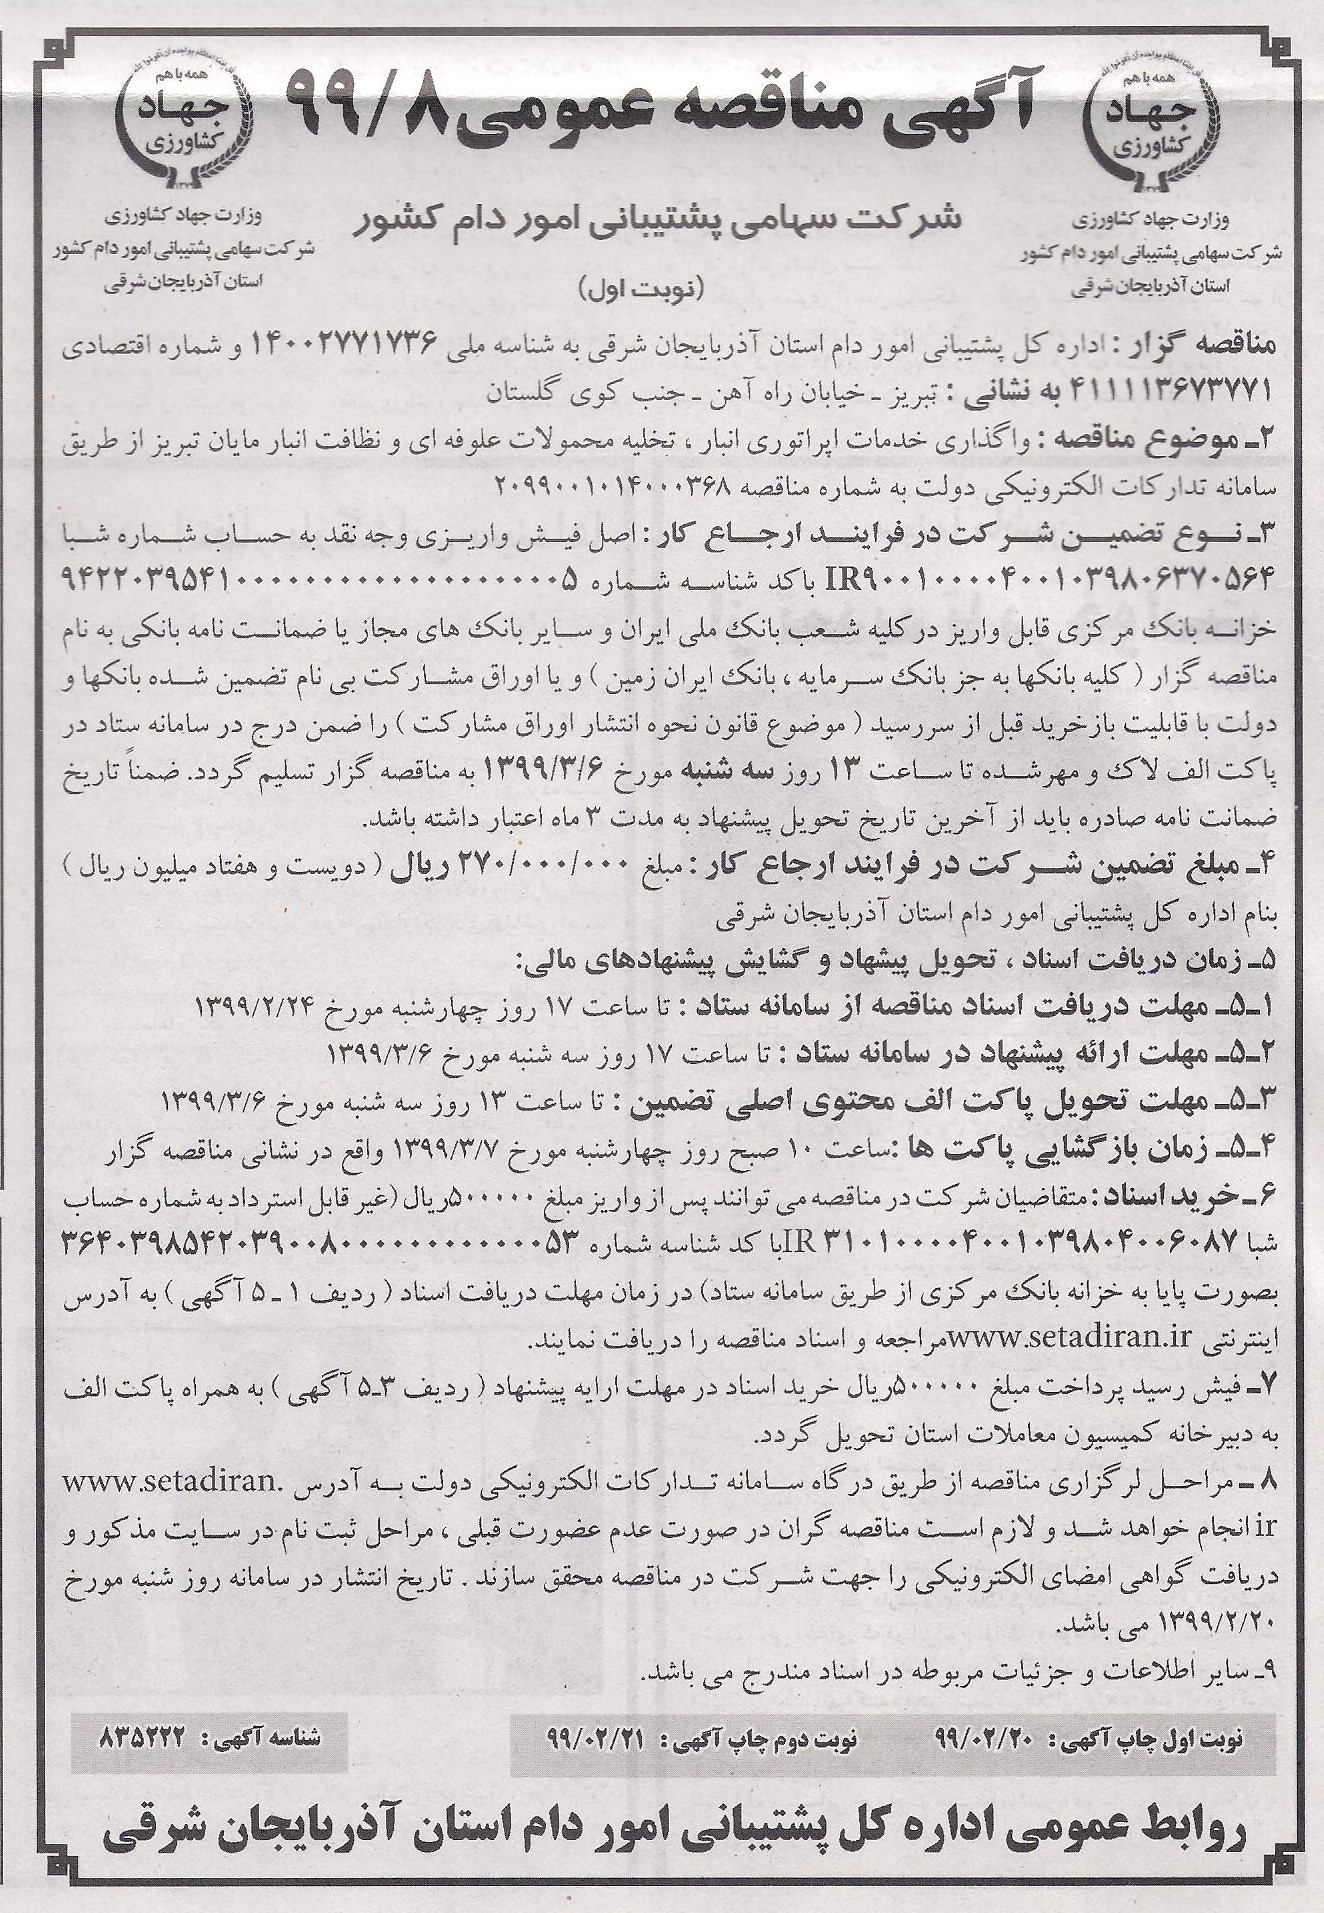 همه با هم
جهاد
کشاورزی
وزارت جهاد کشاورزی
شرکت سهامی پشتیبانی امور دام کشور
استان آذربایجان شرقی
آگهی مناقصه عمومی ۹۹/۸
شرکت سهامی پشتیبانی امور دام کشور
(نوبت اول)
همه با هم
جهاد
کشاورزی
وزارت جهاد کشاورزی
شرکت سهامی پشتیبانی امور دام کشور
استان آذربایجان شرقی
مناقصه گزار : اداره کل پشتیبانی امور دام استان آذربایجان شرقی به شناسه ملی ۱۴۰۰۲۷۷۱۷۳۶ و شماره اقتصادی
۴۱۱۱۱۳۶۷۳۷۷۱ به نشانی : تبریز ـ خیابان راه آهن ـ جنب کوی گلستان
۲ـ موضوع مناقصه : واگذاری خدمات اپراتوری انبار ، تخلیه محمولات علوفه ای و نظافت انبار مایان تبریز از طریق
سامانه تدارکات الکترونیکی دولت به شماره مناقصه ۲۰۹۹۰۰۱۰۱۴۰۰۰۳۶۸
۳ـ نوع تضمین شرکت در فرایند ارجاع کار : اصل فیش واریزی وجه نقد به حساب شماره شبا
IR۹۰۰۱۰۰۰۰۴۰۰۱۰۳۹۸۰۶۳۷۰۵۶۴ باکد شناسه شماره ۹۴۲۲۰۳۹۵۴۱۰۰۰۰۰۰۰۰۰۰۰۰۰۰۰۰۰۰۰۵
خزانه بانک مرکزی قابل واریز در کلیه شعب بانک ملی ایران و سایر بانک های مجاز یا ضمانت نامه بانکی به نام
مناقصه گزار ( کلیه بانکها به جز بانک سرمایه ، بانک ایران زمین ) و یا اوراق مشارکت بی نام تضمین شده بانکها و
دولت با قابلیت بازخرید قبل از سررسید ( موضوع قانون نحوه انتشار اوراق مشارکت ) را ضمن درج در سامانه ستاد در
پاکت الف لاک و مهرشده تا ساعت ۱۳ روز سه شنبه مورخ ۱۳۹۹/۳/۶ به مناقصه گزار تسلیم گردد. ضمناً تاریخ
ضمانت نامه صادره باید از آخرین تاریخ تحویل پیشنهاد به مدت ۳ ماه اعتبار داشته باشد.
۴ـ مبلغ تضمین شرکت در فرایند ارجاع کار : مبلغ ۲۷۰/۰۰۰/۰۰۰ ریال ( دویست و هفتاد میلیون ریال )
بنام اداره کل پشتیبانی امور دام استان آذربایجان شرقی
۵ـ زمان دریافت اسناد ، تحویل پیشهاد و گشایش پیشنهادهای مالی:
۵ـ۱ـ مهلت دریافت اسناد مناقصه از سامانه ستاد : تا ساعت ۱۷ روز چهارشنبه مورخ ۱۳۹۹/۲/۲۴
۵ـ۲ـ مهلت ارائه پیشنهاد در سامانه ستاد : تا ساعت ۱۷ روز سه شنبه مورخ ۱۳۹۹/۳/۶
۵ـ۳ـ مهلت تحویل پاکت الف محتوی اصلی تضمین : تا ساعت ۱۳ روز سه شنبه مورخ ۱۳۹۹/۳/۶
۵ـ۴ـ زمان بازگشایی پاکت ها :ساعت ۱۰ صبح روز چهارشنبه مورخ ۱۳۹۹/۳/۷ واقع در نشانی مناقصه گزار
۶ـ خرید اسناد : متقاضیان شرکت در مناقصه می توانند پس از واریز مبلغ ۵۰۰۰۰۰ریال (غیر قابل استرداد به شماره حساب
شبا IR ۳۱۰۱۰۰۰۰۴۰۰۱۰۳۹۸۰۴۰۰۶۰۸۷با کد شناسه شماره ۳۶۴۰۳۹۸۵۴۲۰۳۹۰۰۸۰۰۰۰۰۰۰۰۰۰۰۰۵۳
بصورت پایا به خزانه بانک مرکزی از طریق سامانه ستاد) در زمان مهلت دریافت اسناد ( ردیف ۱ ـ ۵ آگهی ) به آدرس
اینترنتی www.setadiran.irمراجعه و اسناد مناقصه را دریافت نمایند.
۷ـ فیش رسید پرداخت مبلغ ۵۰۰۰۰۰ریال خرید اسناد در مهلت ارایه پیشنهاد ( ردیف ۳ـ۵ آگهی ) به همراه پاکت الف
به دبیرخانه کمیسیون معاملات استان تحویل گردد.
۸ ـ مراحل لرگزاری مناقصه از طریق درگاه سامانه تدارکات الکترونیکی دولت به آدرس www.setadiran.
ir انجام خواهد شد و لازم است مناقصه گران در صورت عدم عضورت قبلی ، مراحل ثبت نام در سایت مذکور و
دریافت گواهی امضای الکترونیکی را جهت شرکت در مناقصه محقق سازند . تاریخ انتشار در سامانه روز شنبه مورخ
۱۳۹۹/۲/۲۰ می باشد.
۹ـ سایر اطلاعات و جزئیات مربوطه در اسناد مندرج می باشد.
نوبت اول چاپ آگهی : ۹۹/۰۲/۲۰ نوبت دوم چاپ آگهی : ۹۹/۰۲/۲۱ شناسه آگهی : ۸۳۵۲۲۲
روابط عمومی اداره کل پشتیبانی امور دام استان آذربایجان شرقی